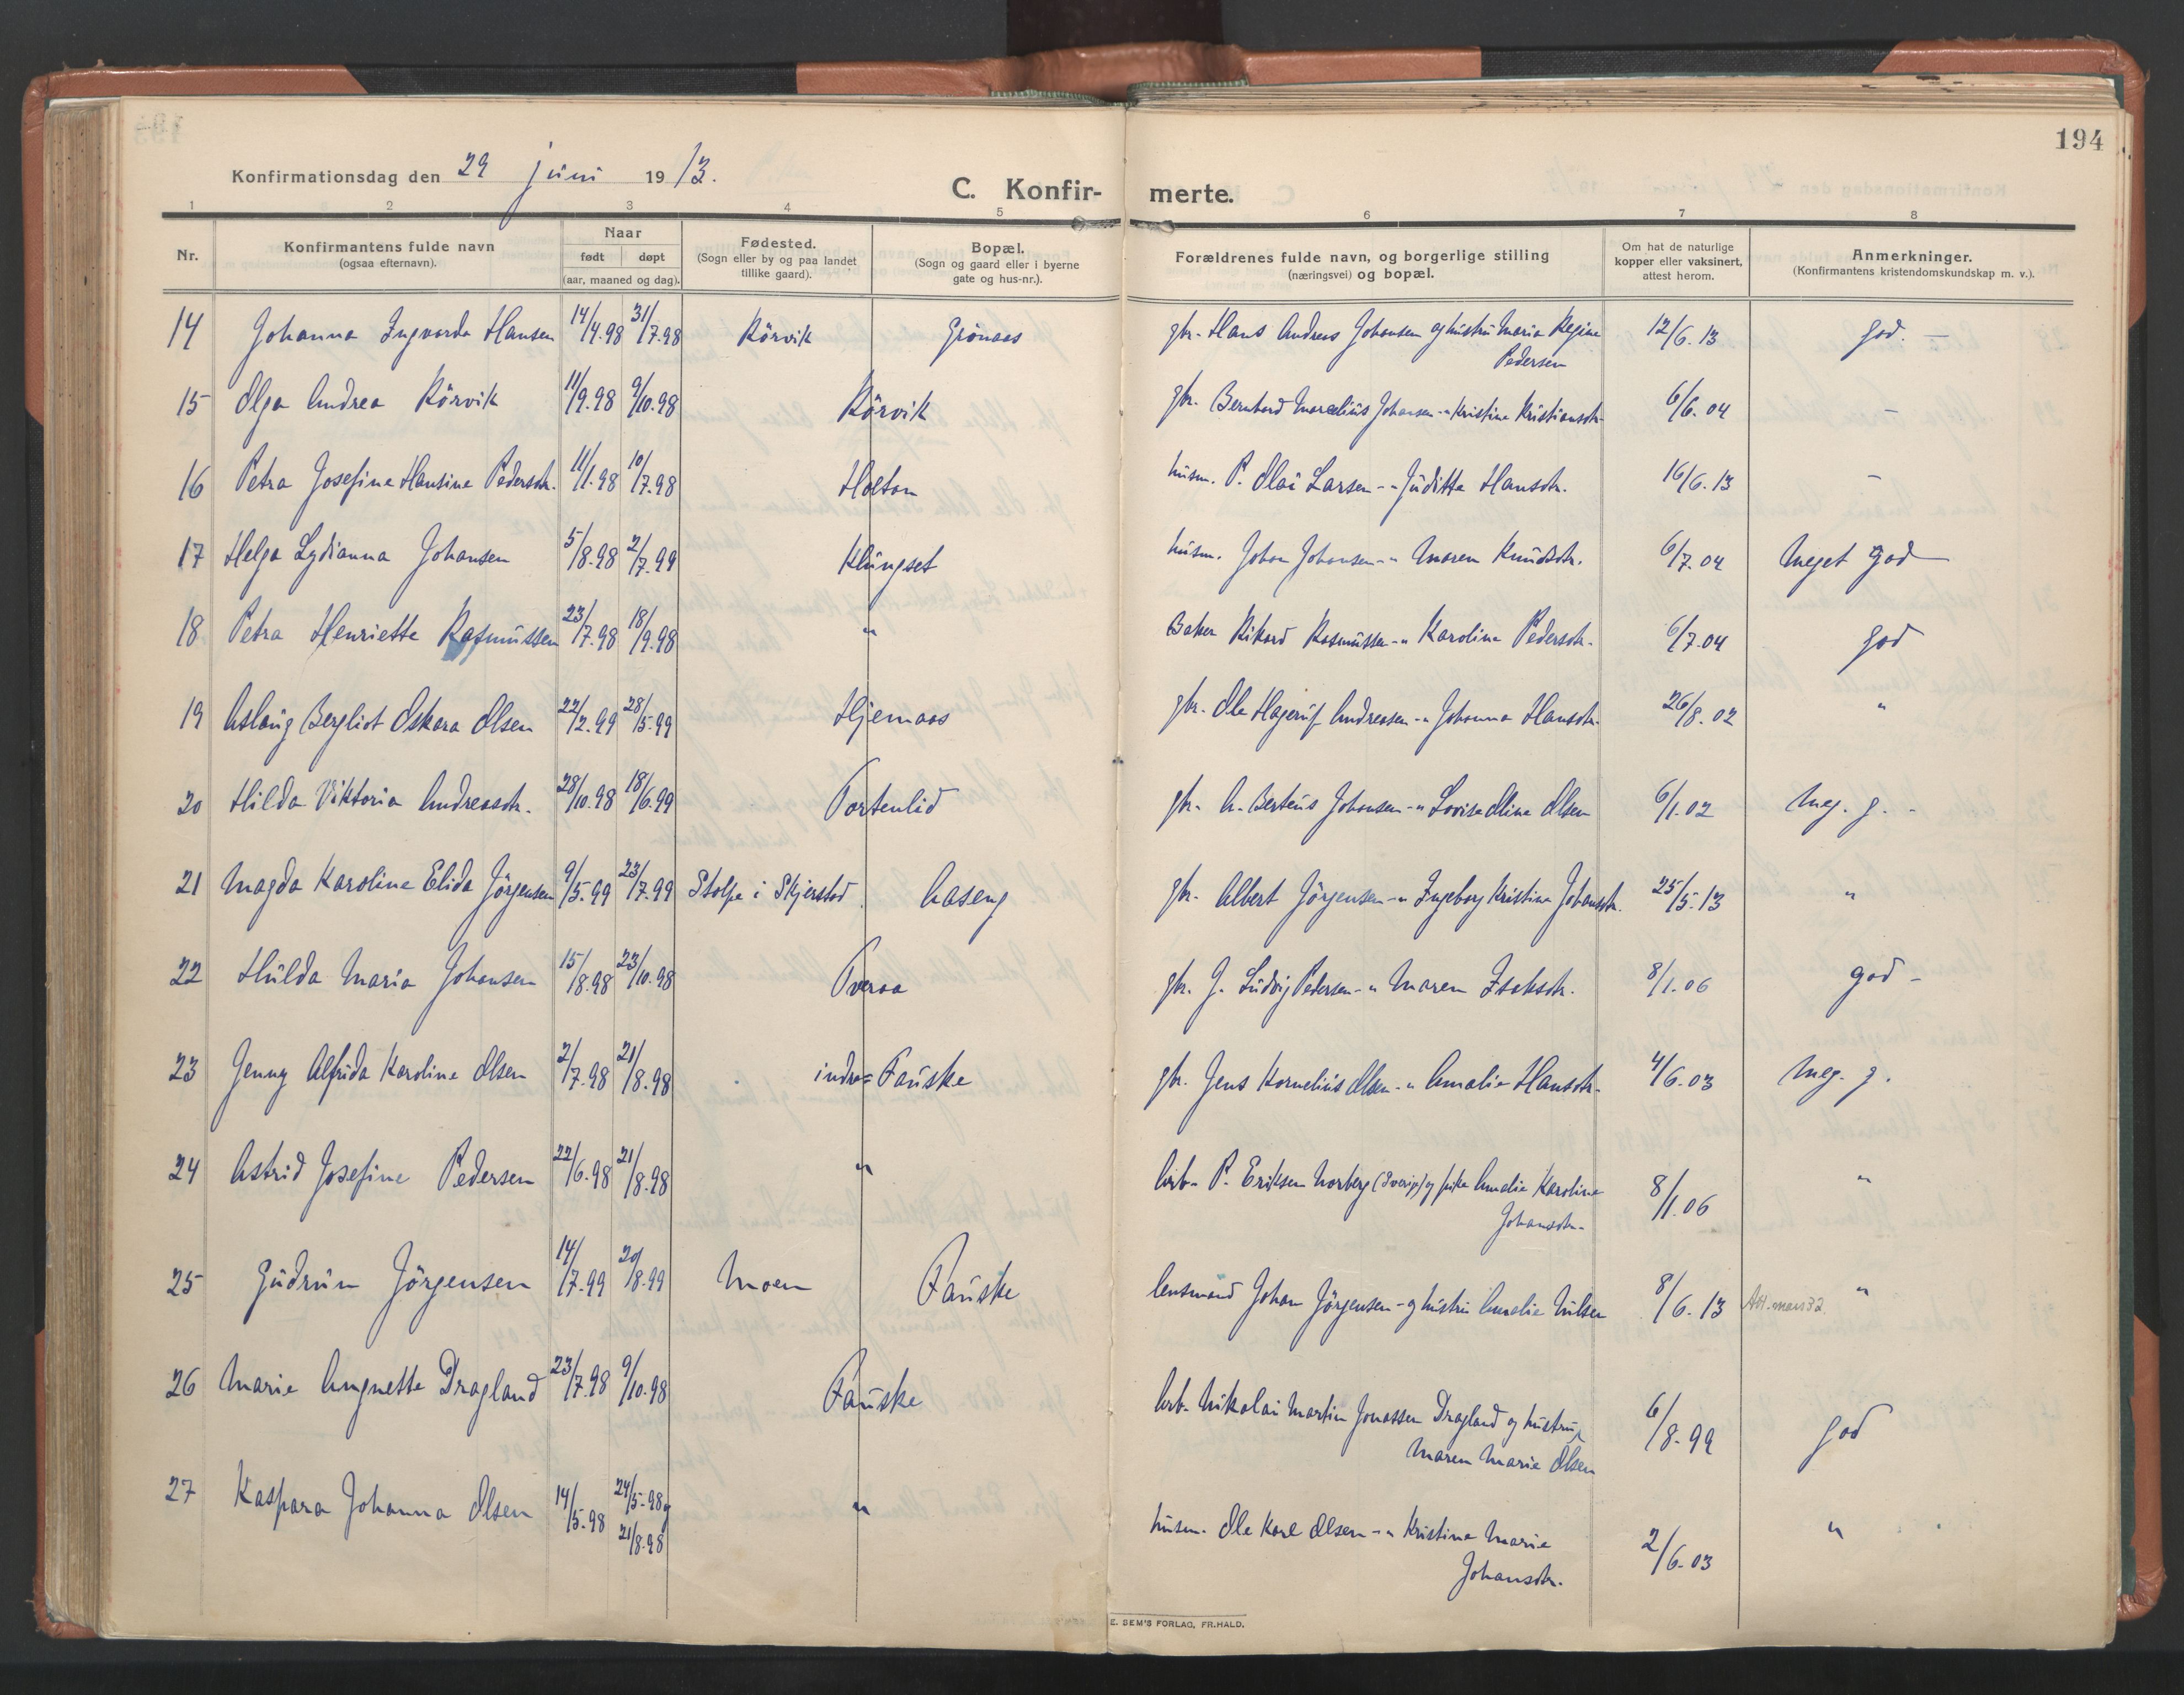 194
Konfirmationsdag den 29 juni 1913.
C. Konfirmerte.
1 2 3 4 5 6 7 8
Nr.
Konfirmantens fulde navn
(ogsaa efternavn).
Naar
født døpt
(aar, maaned og dag).
Fødested.
(Sogn eller by og paa landet
tillike gaard).
Bopæl.
(Sogn og gaard eller i byerne
gate og hus-nr.).
Forældrenes fulde navn, og borgerlige stilling
(næringsvei) og bopæl.
Om hat de naturlige
kopper eller vaksinert,
attest herom.
Anmerkninger.
(Konfirmantens kristendomskundskap m. v.).
14 Johanna Ingvarda Hansen 14/4.98 31/7.98 Rörvik Grönaas gbr. Hans Andreas Johansen og hustru Maria Regine 12/6.13 god. —
Pedersen
15 Olga Andrea Rörvik 11/9.98 9/10.98 Rörvik gbr. Bernhard Marelius Johansen -" Kristine Kristiansdtr. 6/6.04 —
16 Petra Josefine Hansine Pedersdtr. 11/1.98 10/7.98 Holtan husm. P. Olai Larsen -" Juditte Hansdtr. 16/6.13 —
17 Helga Lydianna Johansen 5/8.98 2/7.99 Klungset husm. Johan Johansen -" Maren Knudsdtr. 6/7.04 Meget god
18 Petra Henriette Rasmussen 23/7.98 18/9.98 " Baker Rikard Rasmussen -" Karoline Pedersdtr. 6/7.04 god
19 Aslaug Bergliot Oskara Olsen 22/2.99 28/5.99 Hjemaas gbr. Ole Hagerup Andreasen -" Johanna Hansdtr. 26/8.02 "
20 Hilda Viktoria Andreasdtr. 28/10.98 18/6.99 Tortenlid gbr. A. Berteus Johansen -" Lovise Oline Olsen 6/1.02 Meg. g. -
21 Magda Karoline Elida Jörgensen 9/5.99 23/7.99 Stolpe i Skjerstad Aaseng gbr. Albert Jörgensen -" Ingeborg Kristine Johansdtr. 25/5.13 "
22 Hulda Maria Johansen 15/8.98 23/10.98 Tveraa gbr. J. Ludvig Pedersen -" Maren Isaksdtr. 8/1.06 god -
23 Jenny Alfrida Karoline Olsen 2/7.98 21/8.98 indre= Fauske gbr. Jens Kornelius Olsen -" Amalie Hansdtr. 4/6.03 Meg. g.
24 Astrid Josefine Pedersen 22/6.98 21/8.98 " Arb. P. Eriksen Norberg (Sverige) og pike Amalie Karoline 8/1.06 "
Johansdtr.
25 Gudrun Jörgensen 14/7.99 20/8.99 Moen Fauske lensmand Johan Jörgensen - og hustru Amalie Nilsen 8/6.13 Att. mars 32. "
26 Marie Angnette Dragland 23/7.98 9/10.98 Fauske Arb. Nikolai Martin Jonassen Dragland og hustru 6/8.99 god
Maren Marie Olsen
27 Kaspara Johanna Olsen 14/5.98 24/5.98 og " husm. Ole Karl Olsen -" Kristine Marie 2/6.03 "
21/8.98 Johansdtr.
E. SEM'S FORLAG, FR.HALD.